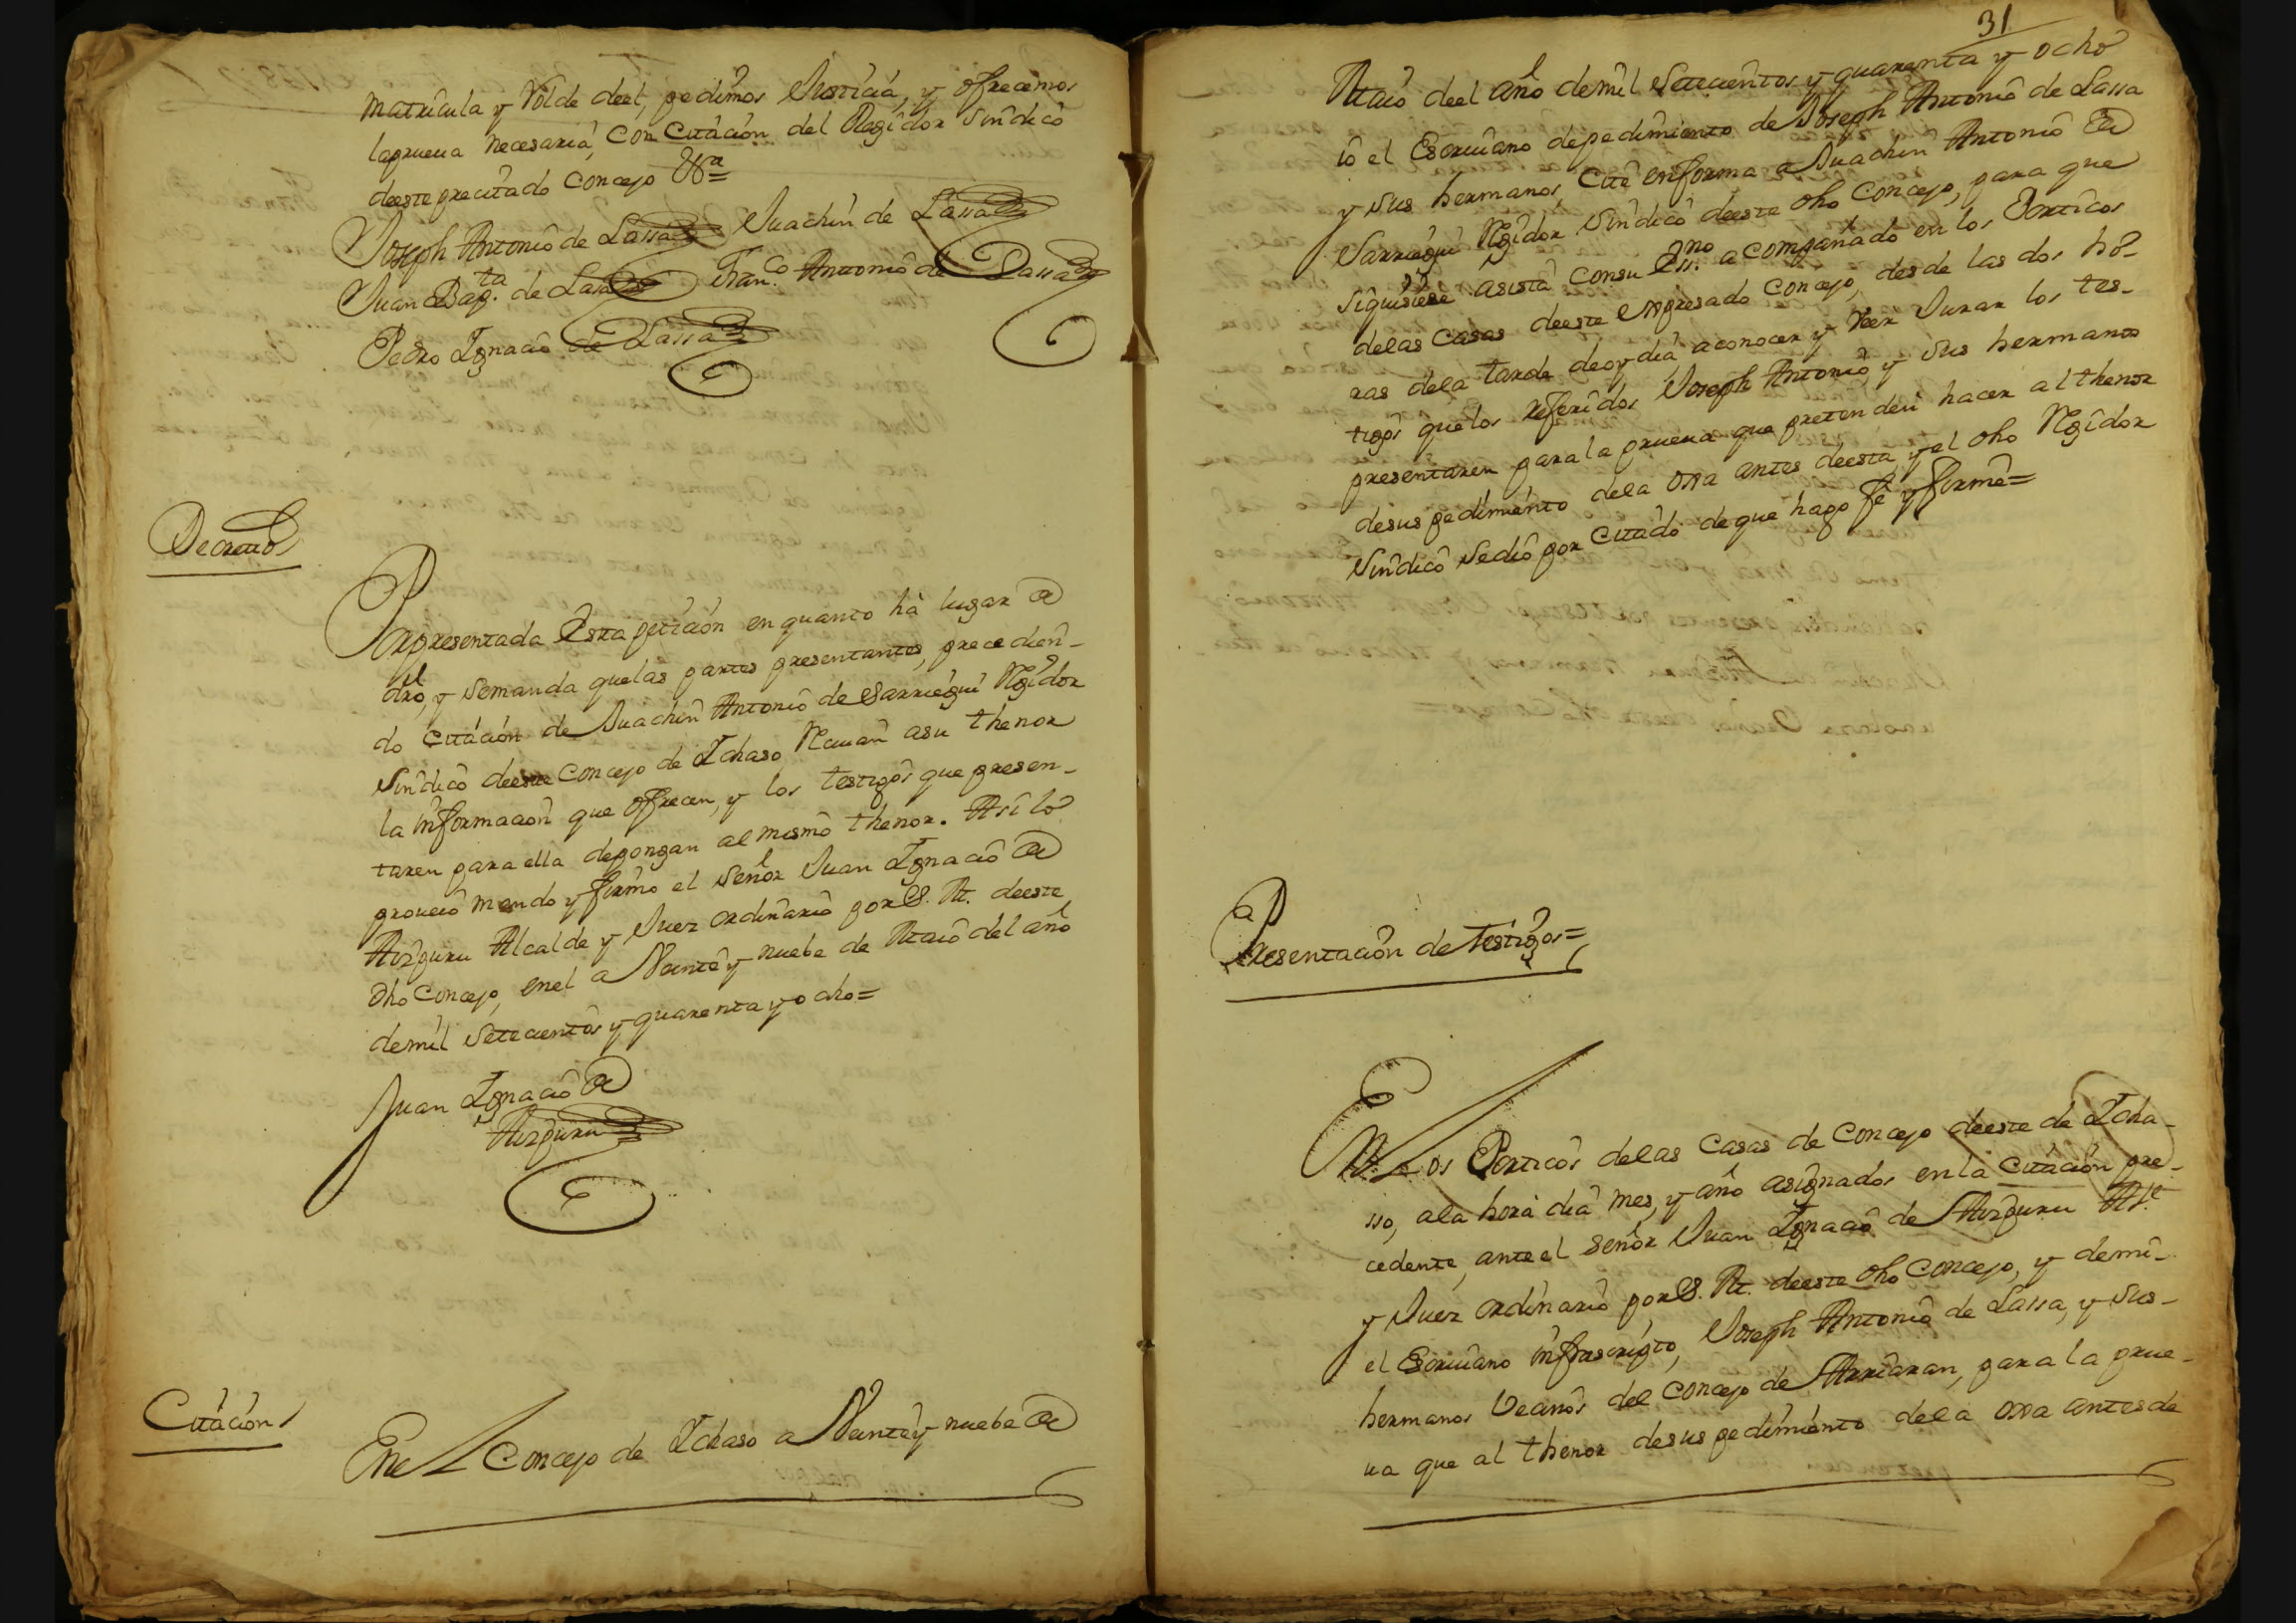 matricula y Rolde deel, pedimos Justicia, y ofrecemos
laprueua necesaria, con Citacion del Regidor Sindico
deeste precitado Concejo Vª=
Joseph Antonio de Lassa Juachin de Lassa
Juan Bapta. de Lassa Franco. Antonio de Lassa
Pedro Ignacio de Lassa
Decreto
Por presentada Esta peticion en quanto há lugar de
dro, y Semanda quelas partes presentantes, precedien-
do Citacion de Juachin Antonio de Sarriegui Regidor
Sindico deeste Concejo de Ichaso Reciuan asu thenor
la informacion que ofrecen, y los testigos que presen-
taren para ella depongan al mismo thenor. Asi lo
proueió mando y firmó el Señor Juan Ignacio de
Aizpuru Alcalde y Juez ordinario por S. M. deeste
dho Concejo, enel a Veinte y nuebe de Maio del año
demil Setecientos y quarenta y ocho=
Juan Ignacio de
Aizpuru
Citacion
Enel Concejo de Ichaso a Veinte y nuebe de
31
Maio deel año demil Setecientos y quarenta y ocho
io el Escriuano depedimiento de Joseph Antonio de Lassa
y sus hermanos, Cité enforma a Juachin Antonio de
Sarriegui Regidor Sindico deeste dho Concejo, para que
siquisiese asista consu Essno. acompañado en los Porticos
delas Casas deeste expresado Concejo, desde las dos ho-
ras dela tarde deoy dia aconocer y Veer Jurar los tes-
tigos quelos referidos Joseph Antonio y sus hermanos
presentaren para la prueua que pretenden hacer al thenor
desus pedimiento dela ora antes deesta, y el dho Regidor
Sindico Sedió por Citado de que hago fe y firmé=
Presentacion de testigos=
En Los Porticos delas Casas de Concejo deeste de Icha-
sso, ala hora dia mes, y año asignados en la Citacion pre-
cedente, ante el Señor Juan Ignacio de Aizpuru Alce.
y Juez ordinario por S. M. deeste dho Concejo, y demi-
el Escriuano infrascripto, Joseph Antonio de Lassa, y sus-
hermanos Vecinos del Concejo de Arriaran, para la prue-
ua que al thenor desus pedimiento dela ora antes de